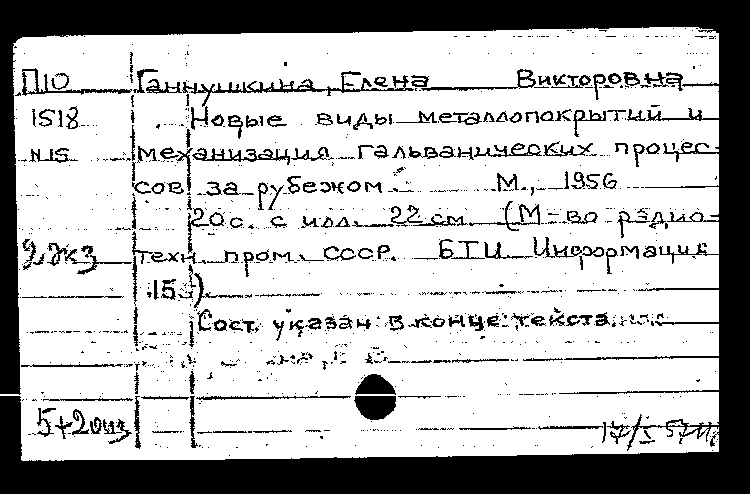 П10 Ганнушкина, Елена Викторовна
1518 Новые виды металлопокрытий и
N15 механизация гальванических процес-
сов за рубежом. М., 1956
20 с. с илл. 22 см. (М-во радио-
2 экз техн. пром. СССР. БТИ. Информация
15).
Сост. указан в конце текста.
5+2